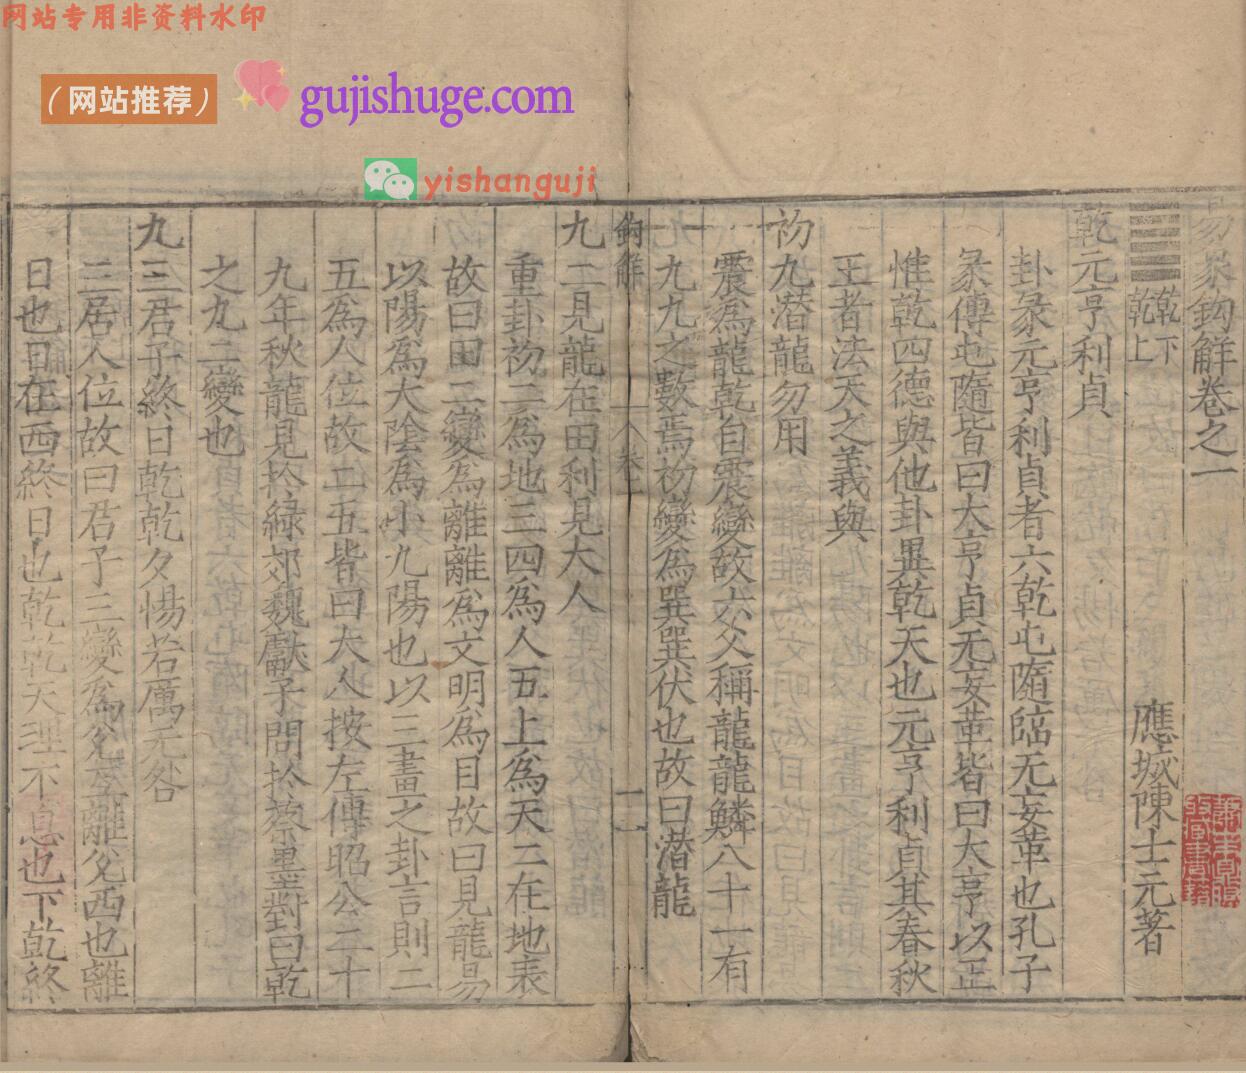 网站专用非资料水印
（网站推荐）
gujishuge.com
yishanguji
易象鈎解卷之一
䷀乾下乾上
應城陳士元著
乾元亨利貞
卦彖元亨利貞者六乾屯隨臨无妄革也孔子
彖傳屯隨皆曰大亨貞无妄革皆曰大亨以正
惟乾四德與他卦異乾天也元亨利貞其春秋
王者法天之義與
初九潛龍勿用
震為龍乾自震變故六爻稱龍龍鱗八十一有
九九之數焉初變為巽巽伏也故曰潛龍
鈎解
卷一
九二見龍在田利見大人
重卦初二為地三四為人五上為天二在地表
故曰田二變為離離為文明為目故曰見龍易
以陽為大陰為小九陽也以三畫之卦言則二
五為人位故二五皆曰大人按左傳昭公二十
九年秋龍見於絳郊魏獻子問於蔡墨對曰乾
之九二變也
九三君子終日乾乾夕惕若厲无咎
三居人位故曰君子三變為兌互離兌西也離
日也日在西終日也乾乾天理不息也下乾終